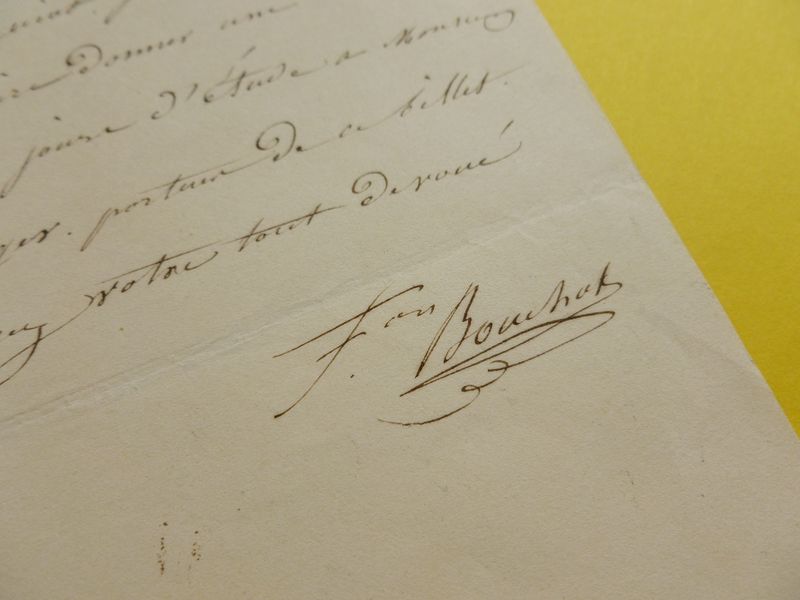 donner une
jours d'étude a Monsieur
porteur de ce billet.
votre tout devoué
F.on Bouchot